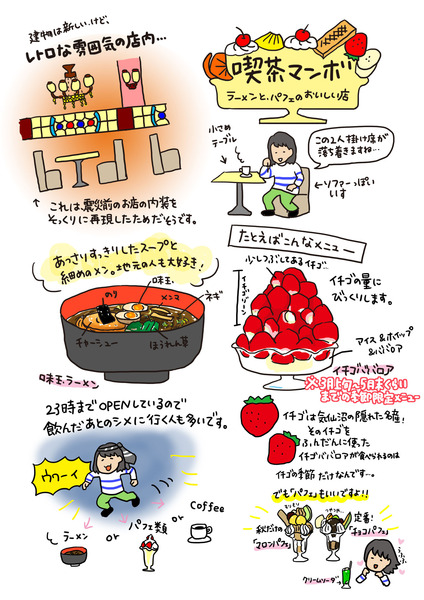 建物は新しい、けど、
レトロな雰囲気の店内…
これは、震災前のお店の内装を
そっくりに再現したためだそうです。
喫茶マンボ
ラーメンと、パフェのおいしい店
小さめ
テーブル
この2人掛け席が
落ち着きますね…
ソファーっぽい
いす
あっさりすっきりしたスープと
細めのメン。地元の人も大好き!
のり
味玉
メンマ
ネギ
チャーシュー
ほうれん草
味玉ラーメン
たとえばこんなメニュー
少しつぶしてあるイチゴ
イチゴゾーン
イチゴの量に
びっくりします。
アイス&ホイップ
&ババロア
イチゴババロア
※3月上旬〜5月末くらい
までの季節限定メニュー
23時までOPENしているので
飲んだあとのシメに行く人も多いです。
ウウーイ
ラーメン
or
パフェ類
or
Coffee
イチゴは気仙沼の隠れた名産!
そのイチゴを
ふんだんに使った
イチゴババロアが食べられるのは
イチゴの季節だけなんです…。
でも「パフェ」もいいですよ!!
秋だけの
「マロンパフェ」
定番!
「チョコパフェ」
クリームソーダ